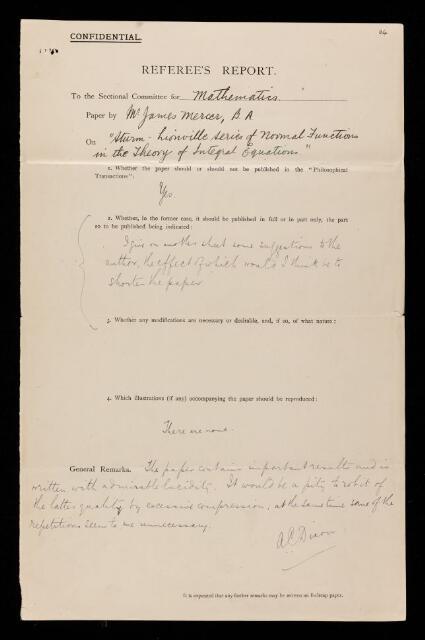 CONFIDENTIAL.
REFEREE'S REPORT.
To the Sectional Committee for Mathematics.
Paper by Mr James Mercer, B A
On "Sturm-Liouville Series of Normal Functions
in the Theory of Integral Equations"
1. Whether the paper should or should not be published in the "Philosophical
Transactions":
Yes.
2. Whether, in the former case, it should be published in full or in part only, the part
so to be published being indicated:
I give on another sheet some suggestions to the
author, the effect of which would I think be to
shorten the paper
3. Whether any modifications are necessary or desirable, and, if so, of what nature:
4. Which illustrations (if any) accompanying the paper should be reproduced:
There are none.
General Remarks. The paper contains important results and is
written with admirable lucidity. It would be a pity to rob it of
the latter quality by excessive compression, at the same time some of the
repetitions seem to me unnecessary.
A C Dixon
It is requested that any further remarks may be written on foolscap paper.